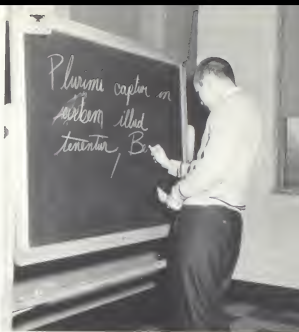 Plurimi captur in
urbem illud
tenentur, Be